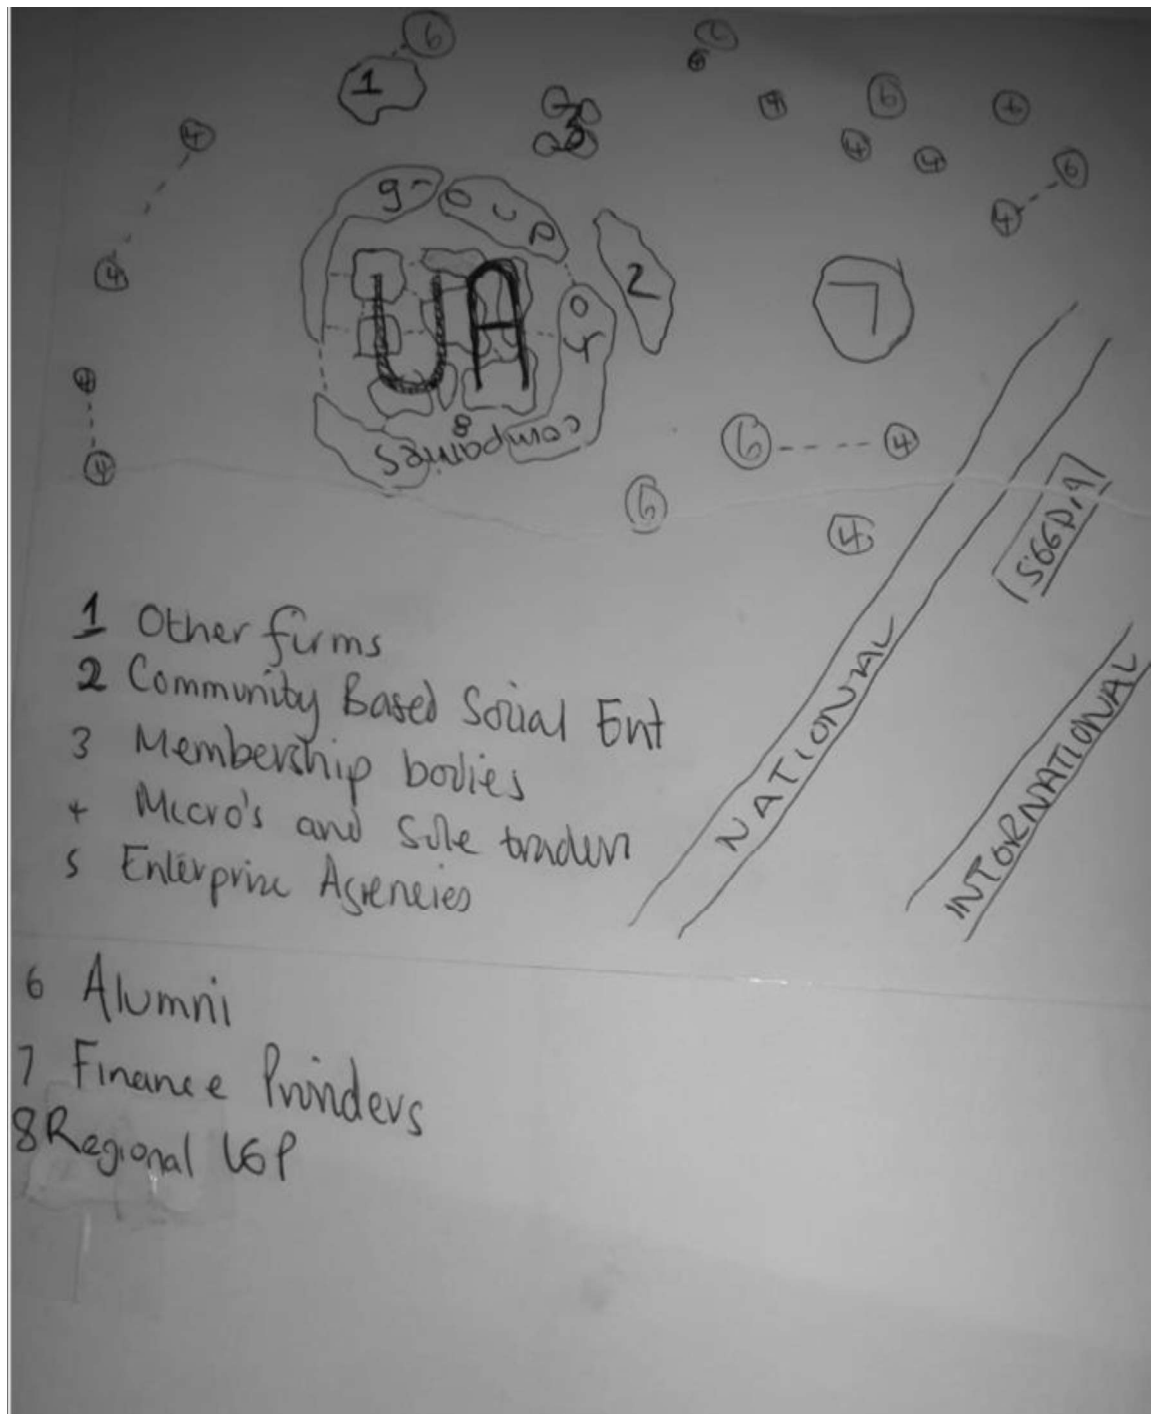 6
1
6
4
3
6
4
4
4
4
6
4
group
UA
of
companies
8
2
7
4
4
4
6
4
6
4
NATIONAL
INTORNATIONAL
1 Other firms
2 Community Based Social Ent
3 Membership bodies
4 Micro's and Sole traders
5 Enterprise Agencies
6 Alumni
7 Finance Providers
8 Regional